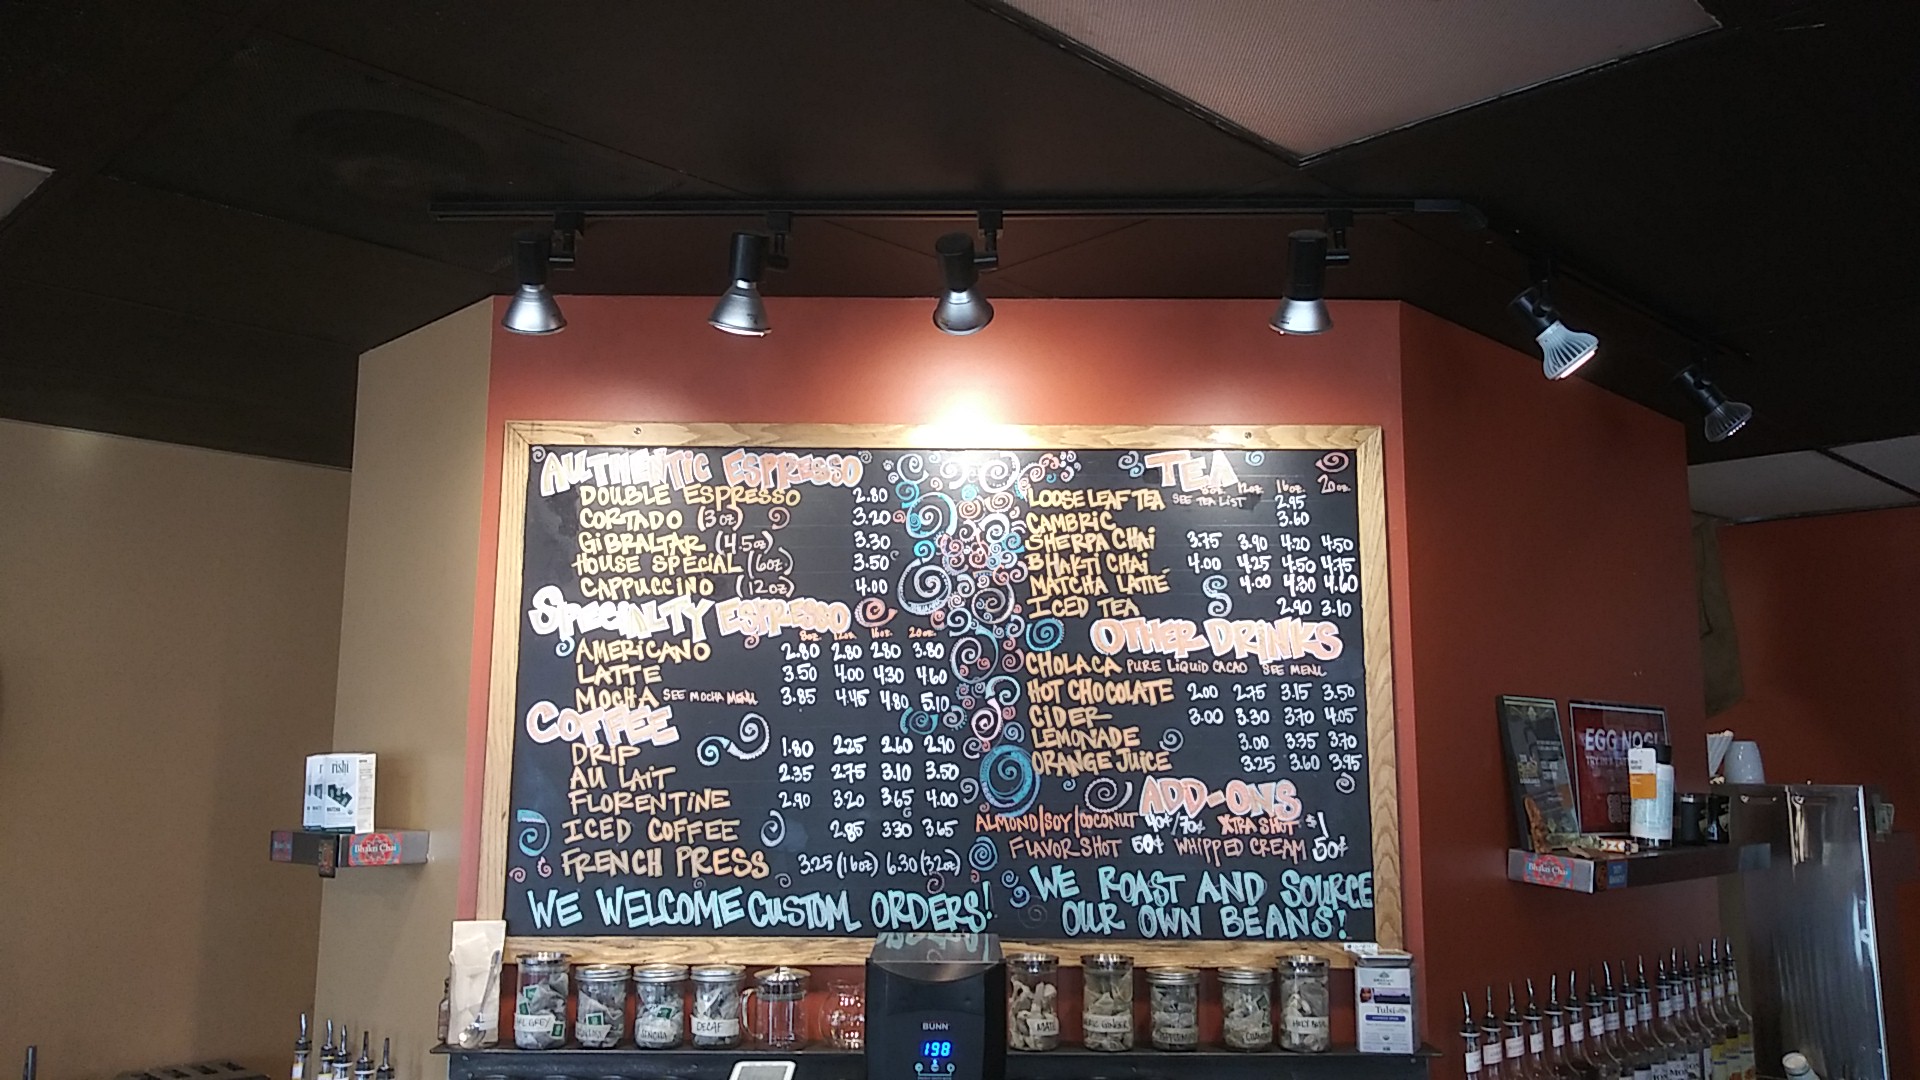 AUTHENTIC ESPRESSO
DOUBLE ESPRESSO 2.80
CORTADO (3oz) 3.20
GIBRALTAR (4.5oz) 3.30
HOUSE SPECIAL (6oz) 3.50
CAPPUCCINO (12oz) 4.00
SPECIALTY ESPRESSO
8oz. 12oz. 16oz. 20oz.
AMERICANO 2.80 2.80 2.80 3.80
LATTE 3.50 4.00 4.30 4.60
MOCHA SEE MOCHA MENU 3.85 4.45 4.80 5.10
COFFEE
DRIP 1.80 2.25 2.60 2.90
AU LAIT 2.35 2.75 3.10 3.50
FLORENTINE 2.90 3.20 3.65 4.00
ICED COFFEE 2.85 3.30 3.65
FRENCH PRESS 3.25 (16oz) 6.30 (32oz)
WE WELCOME CUSTOM ORDERS!
TEA
8oz. 12oz. 16oz. 20oz.
LOOSE LEAF TEA SEE TEA LIST 2.95
CAMBRIC 3.60
SHERPA CHAI 3.75 3.90 4.20 4.50
BHAKTI CHAI 4.00 4.25 4.50 4.75
MATCHA LATTE 4.00 4.30 4.60
ICED TEA 2.90 3.10
OTHER DRINKS
CHOLACA PURE LIQUID CACAO SEE MENU
HOT CHOCOLATE 2.00 2.75 3.15 3.50
CIDER 3.00 3.30 3.70 4.05
LEMONADE 3.00 3.35 3.70
ORANGE JUICE 3.25 3.60 3.95
ADD-ONS
ALMOND|SOY|COCONUT 40¢/70¢ XTRA SHOT $1
FLAVOR SHOT 50¢ WHIPPED CREAM 50¢
WE ROAST AND SOURCE
OUR OWN BEANS!
rishi
Bhakti Chai
EGG NOG
Bhakti Chai
DECAF
BUNN
198
Tulsi